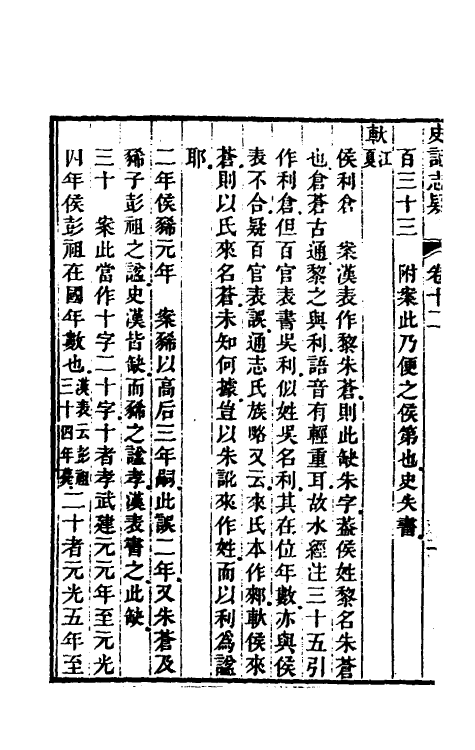 史記志疑 卷十二
百三十三 附案此乃便之侯第也史失書
軑江夏
侯利倉 案漢表作黎朱蒼則此缺朱字葢侯姓黎名朱蒼
也倉蒼古通黎之與利語音有輕重耳故水經注三十五引
作利倉但百官表書吳利似姓吳名利其在位年數亦與侯
表不合疑百官表誤通志氏族略又云來氏本作郲軑侯來
蒼則以氏來名蒼未知何據豈以朱訛來作姓而以利爲謚
耶
二年侯豨元年 案豨以高后三年嗣此誤二年又朱蒼及
豨子彭祖之謚史漢皆缺而豨之謚孝漢表書之此缺
三十 案此當作十字二十字十者孝武建元元年至元光
四年侯彭祖在國年數也漢表云彭祖三十四年薨二十者元光五年至